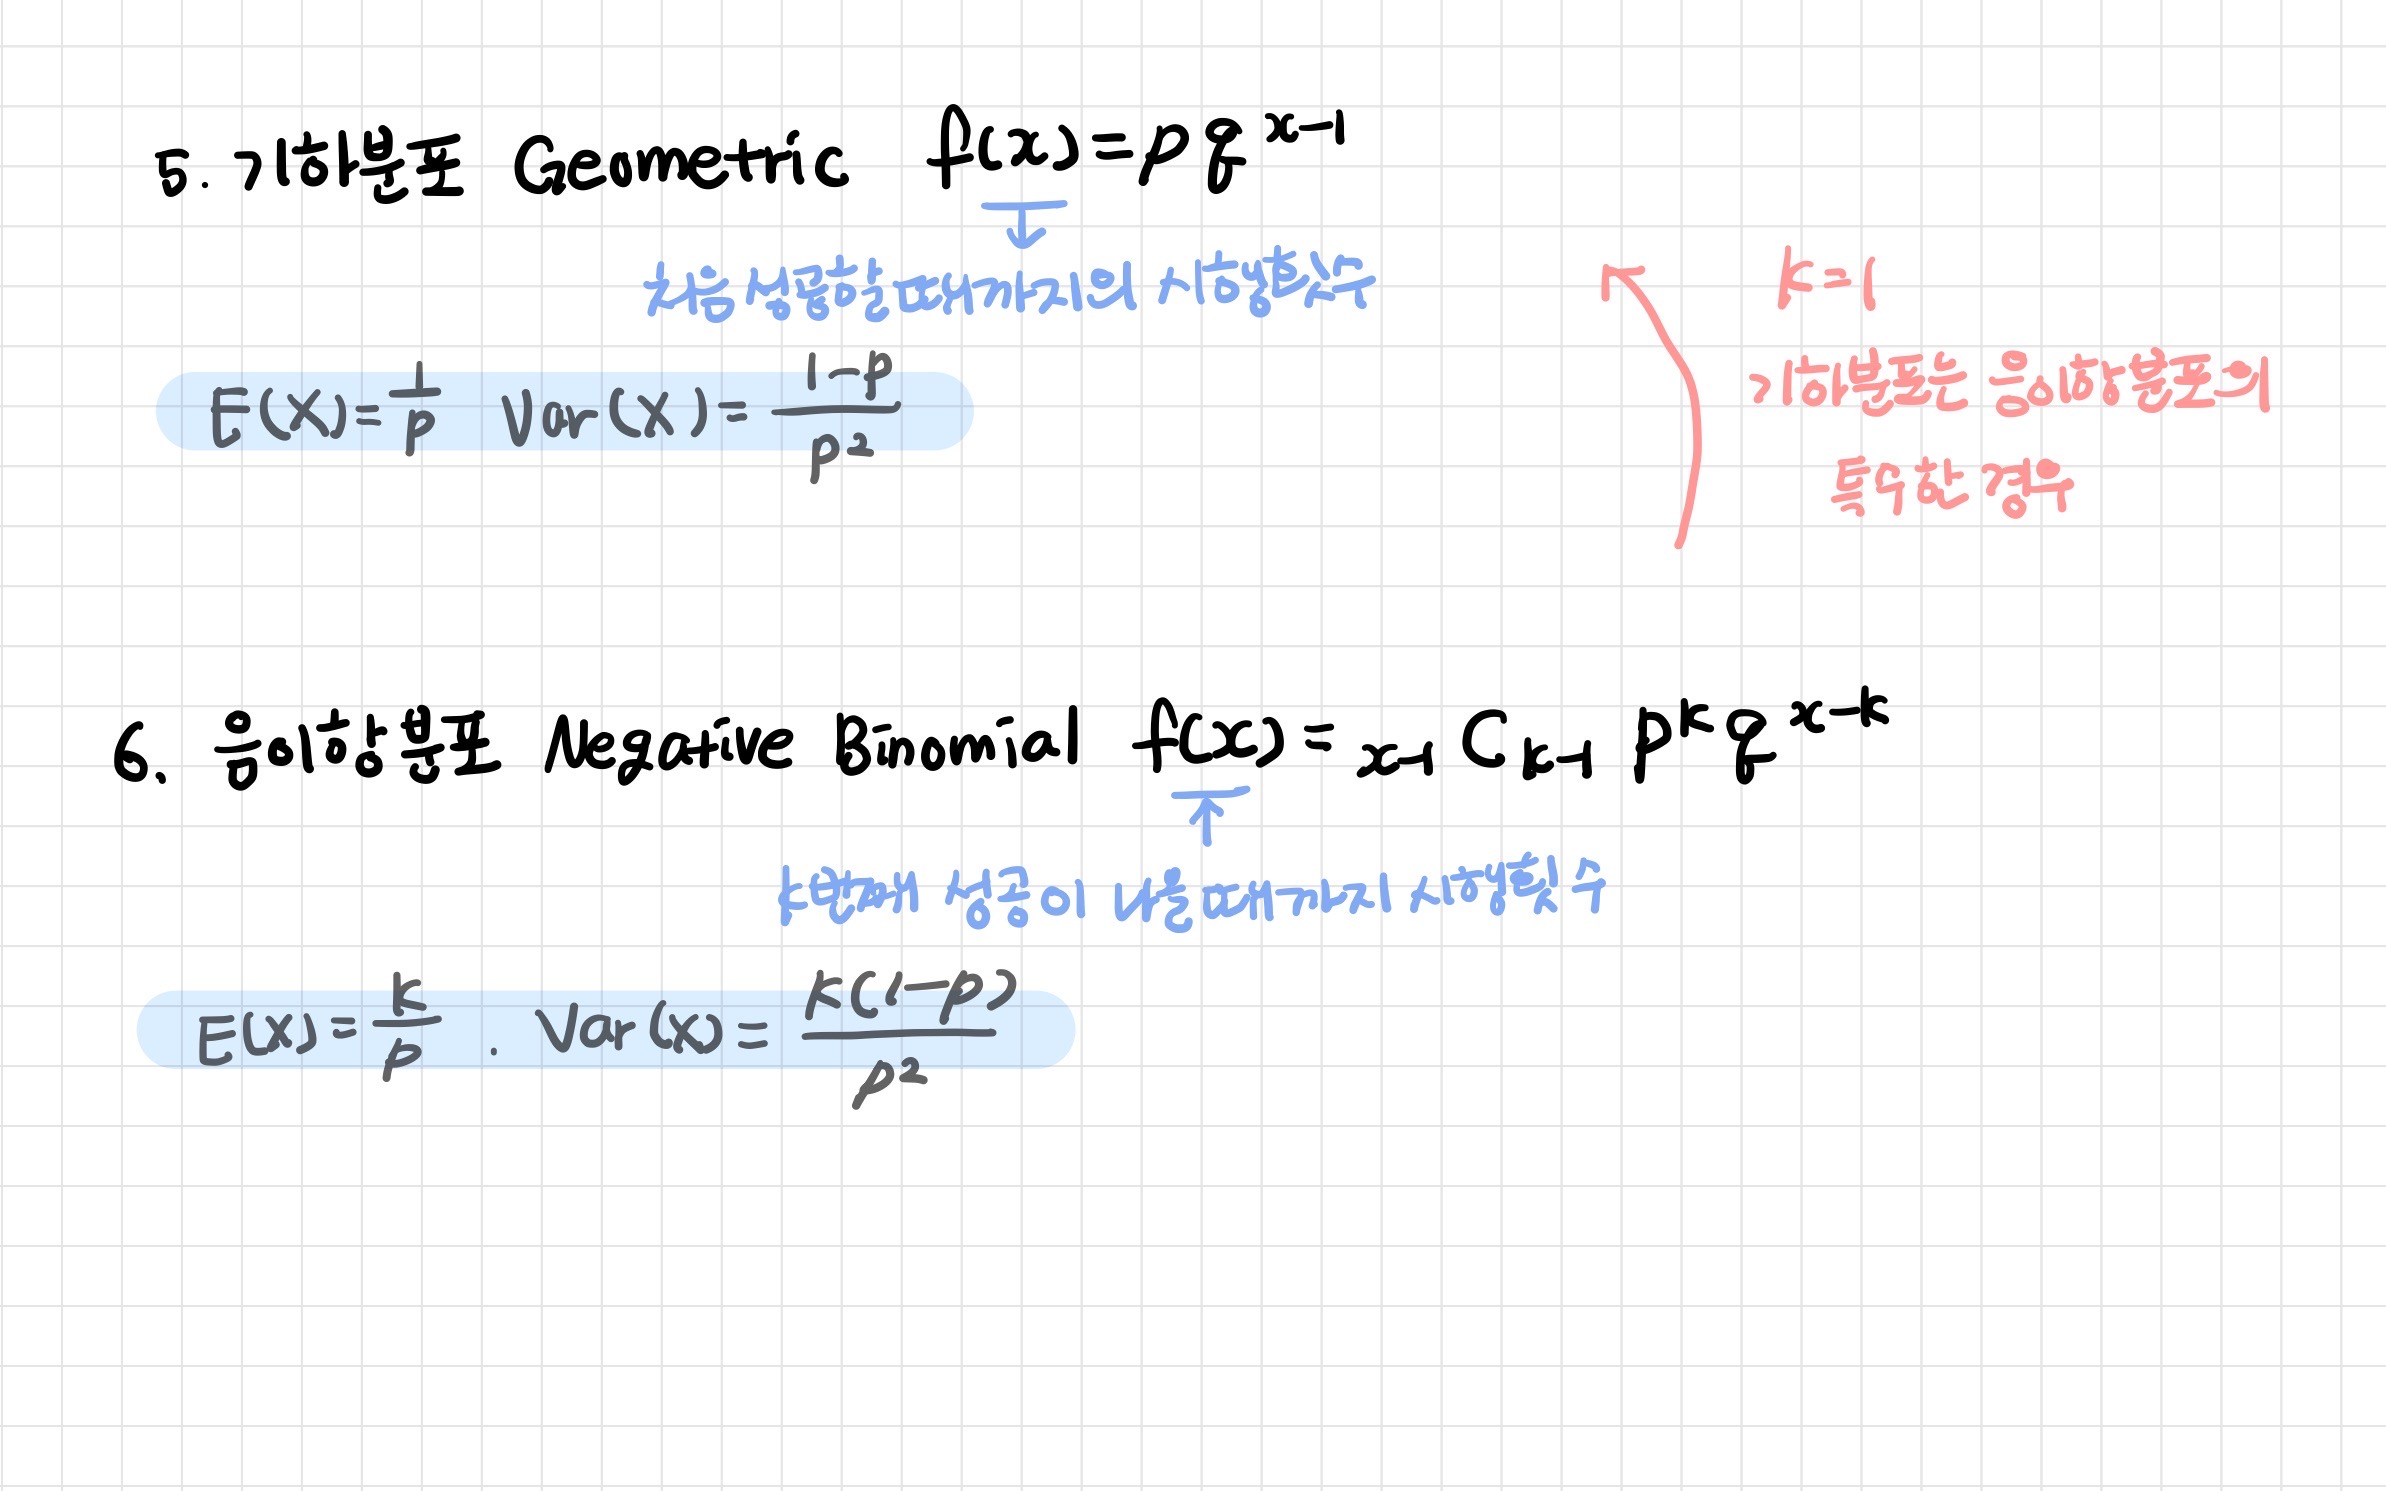 5. 기하분포 Geometric f(x)=pq^{x-1}
처음 성공할 때까지의 시행횟수
E(X)=\frac{1}{p} Var(X)=\frac{1-p}{p^2}
k=1
기하분포는 음이항분포의
특수한 경우
6. 음이항분포 Negative Binomial f(x)= _{x-1}C_{k-1} p^k q^{x-k}
k번째 성공이 나올 때까지 시행횟수
E(X)=\frac{k}{p} . Var(X)=\frac{k(1-p)}{p^2}